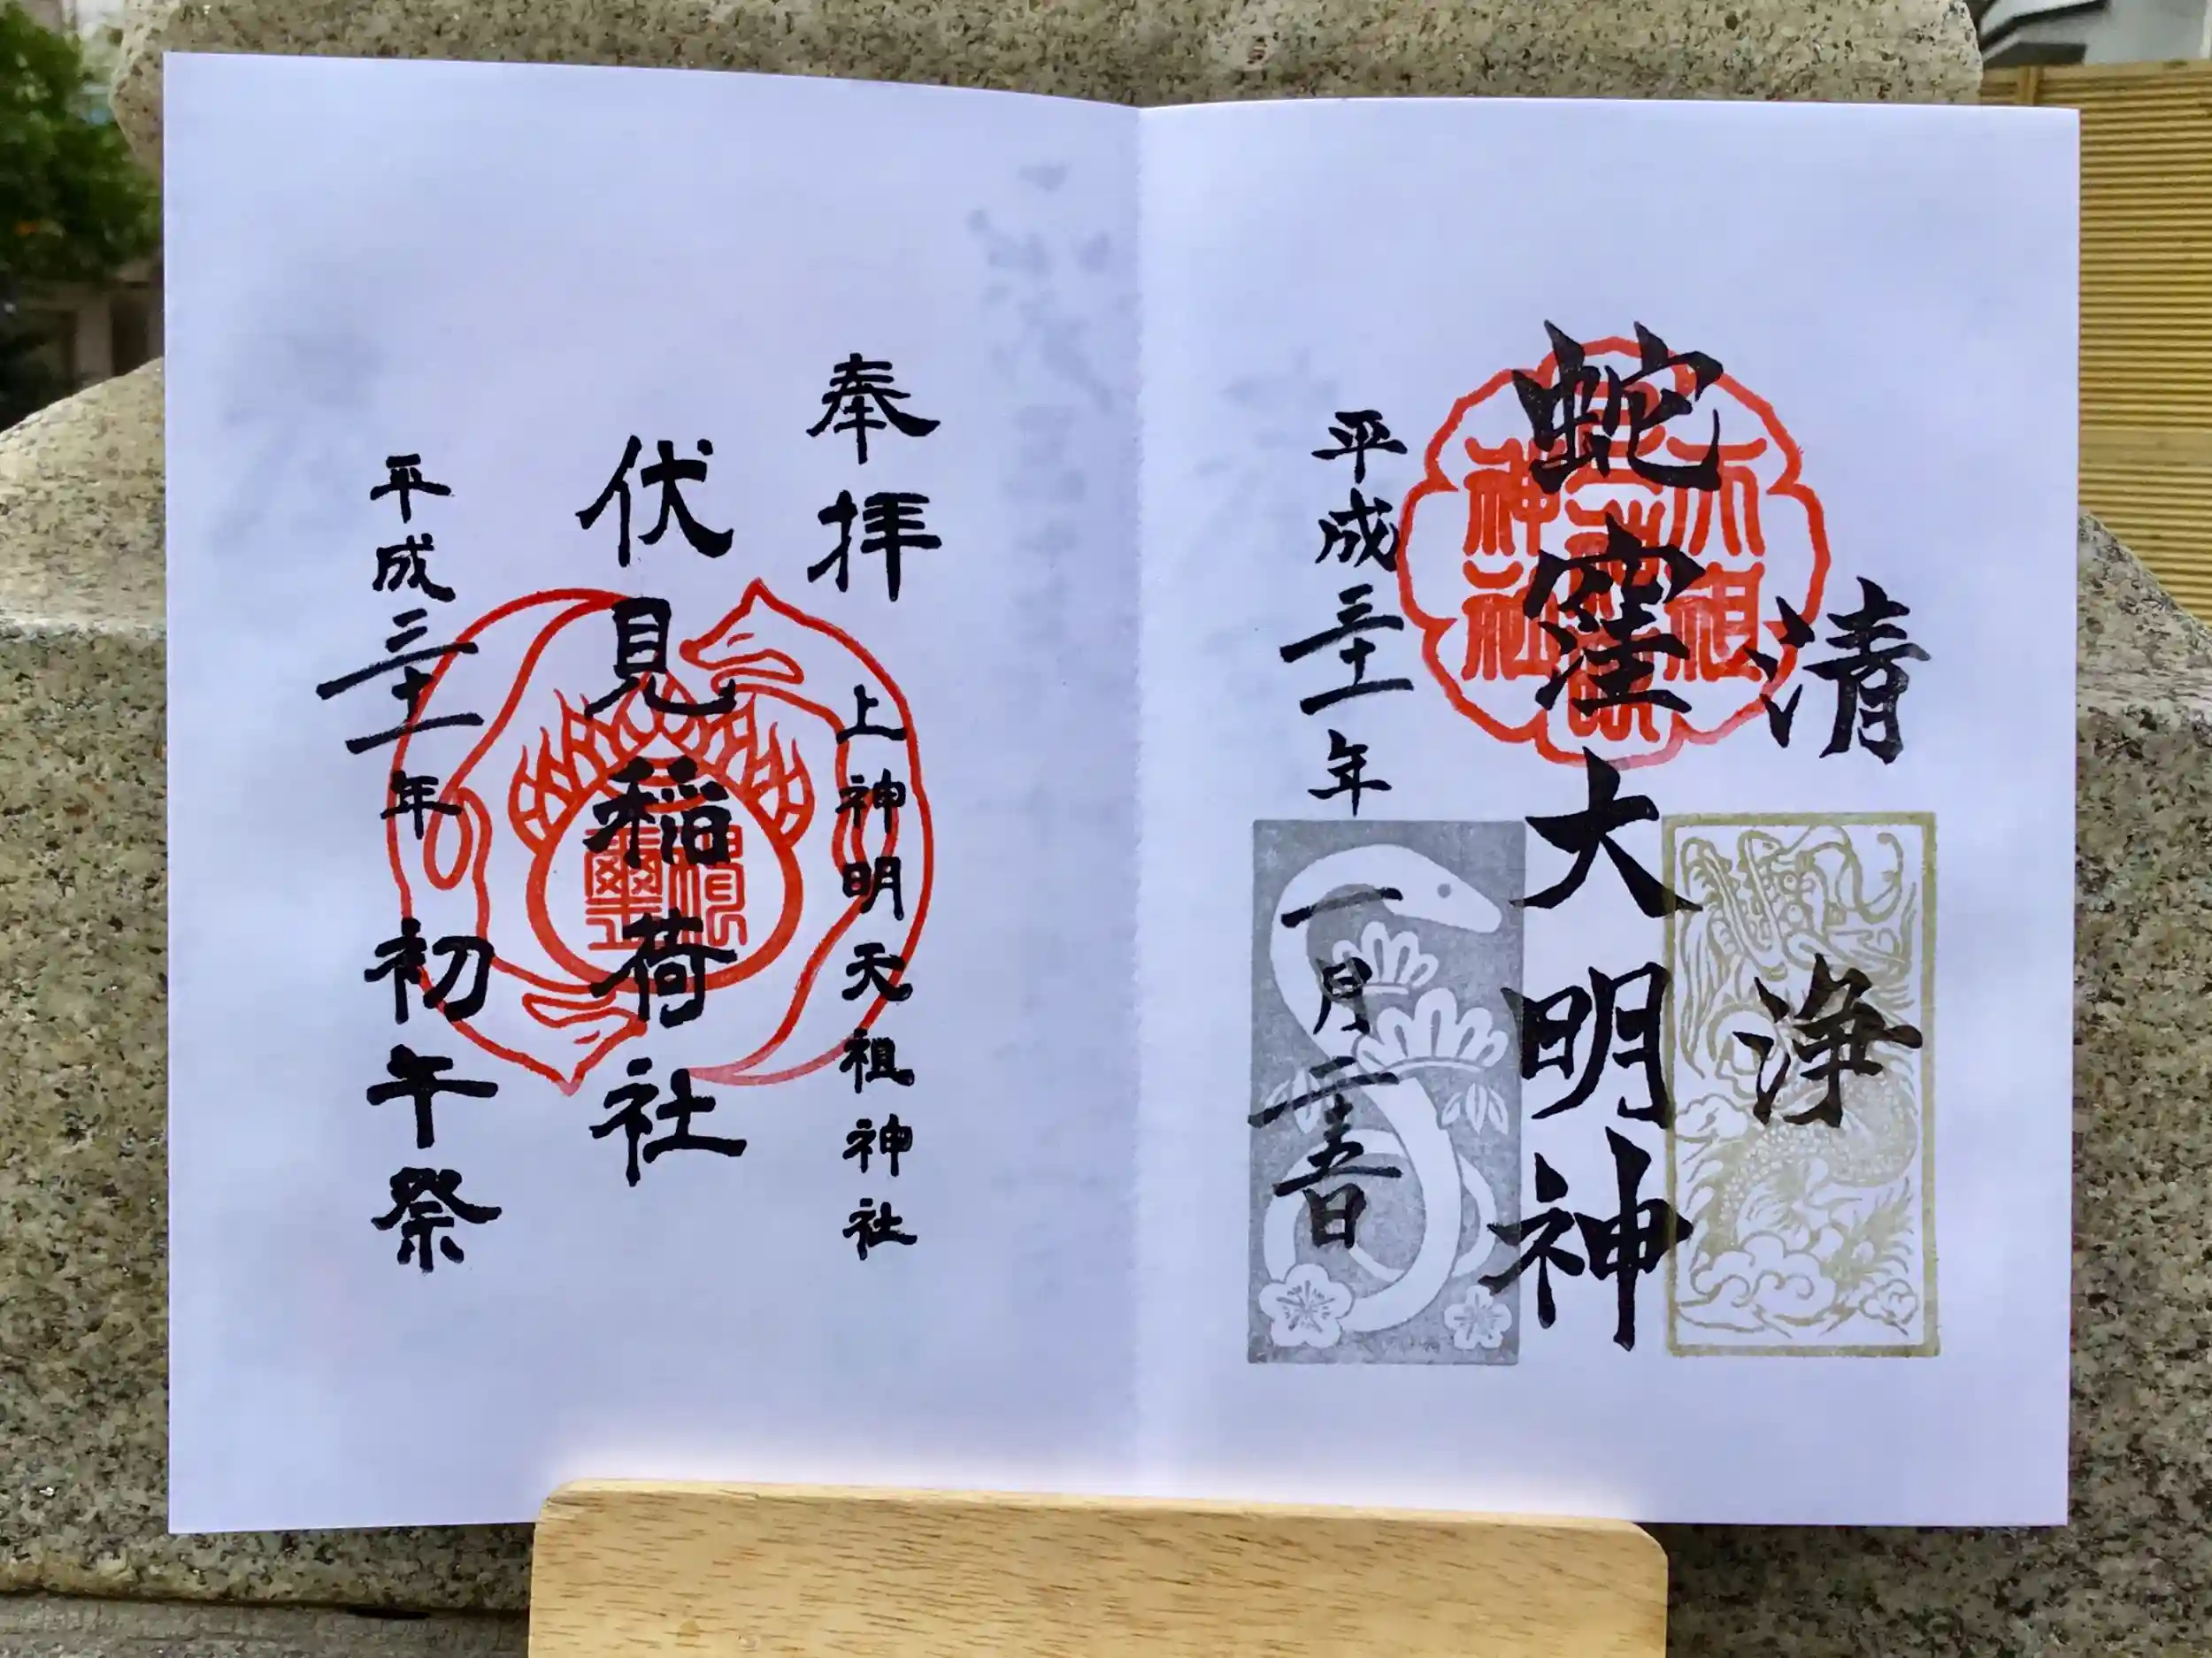 清浄
蛇窪大明神
天祖
神社
平成三十一年一月二十五日
奉拝
上神明天祖神社
伏見稲荷社
平成三十一年初午祭